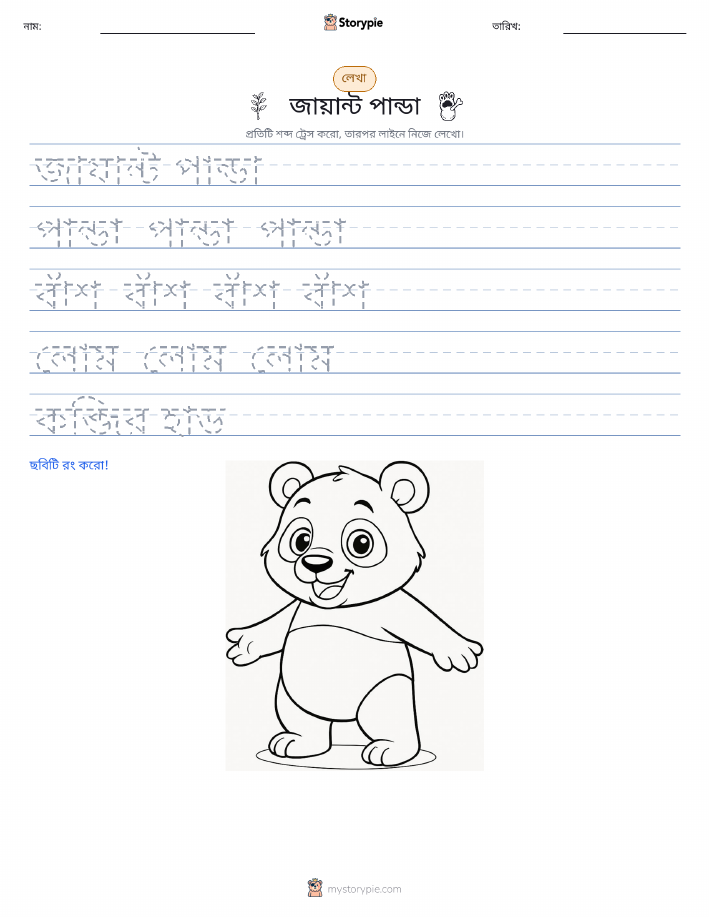 নাম:
Storypie
তারিখ:
লেখা
জায়ান্ট পান্ডা
প্রতিটি শব্দ ট্রেস করো, তারপর লাইনে নিজে লেখো।
জায়ান্ট পান্ডা
পান্ডা পান্ডা পান্ডা
বাঁশ বাঁশ বাঁশ বাঁশ
লোম লোম লোম
কব্জির হাড়
ছবিটি রং করো!
mystorypie.com